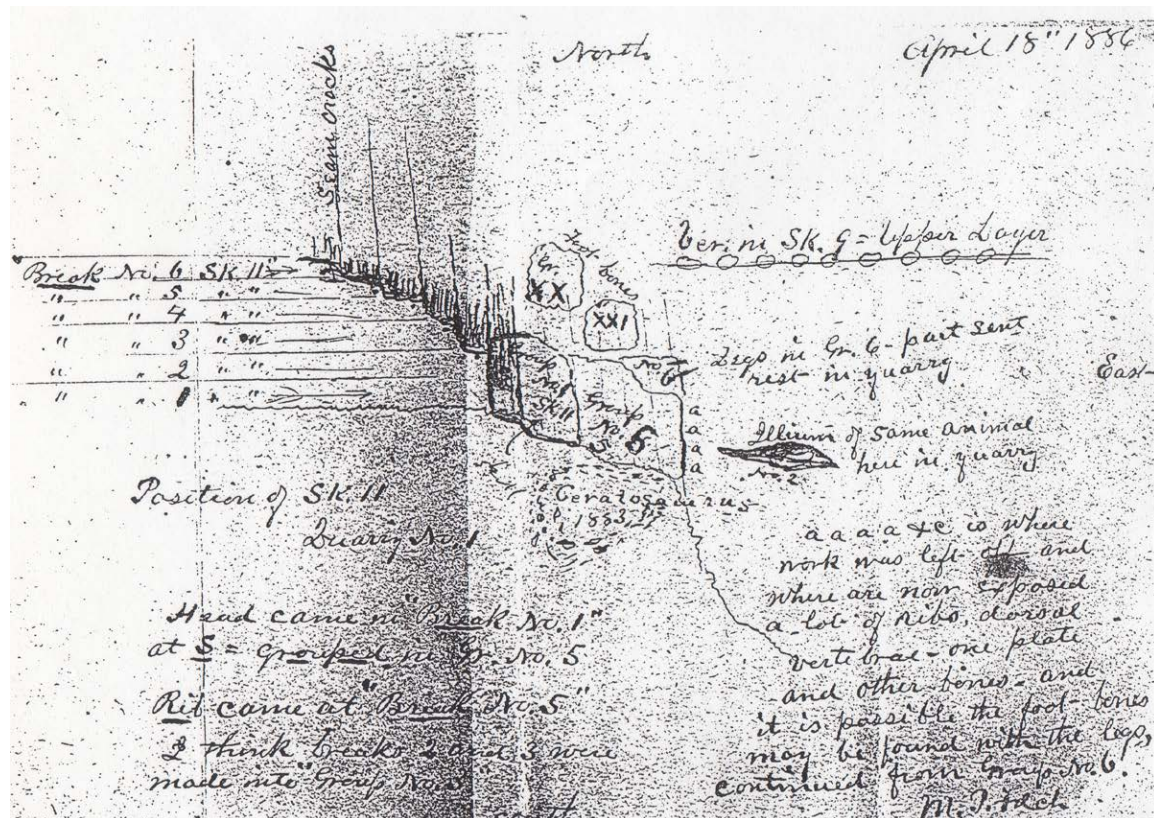 North
April 18" 1886
Seam cracks
"Break No. 6 SK 11"
" " 5 " "
" " 4 " "
" " 3 " "
" " 2 " "
" " 1 " "
Foot bones
Gr.
XX
XXI
Ver. in SK. 9 = Upper Layer
No 6
Legs in Gr. 6 - part sent
rest in quarry
East
Group
No 1
SK 11
Group
No. 5
S
a
a
a
a
Illium of same animal
here in quarry
No. 2
Ceratosaurus
1883
Position of SK 11
Quarry No. 1
Head came in "Break No. 1"
at S = Grouped in Gr. No. 5
Rib came at "Break No. 5"
I think breaks 2 and 3 were
made into "Group No.
a a a a &c is where
work was left off and
where are now exposed
a lot of ribs dorsal
vertebrae - one plate
and other bones - and
it is possible the foot-bones
may be found with the legs,
continued from Group No. 6.
M. P. Felch